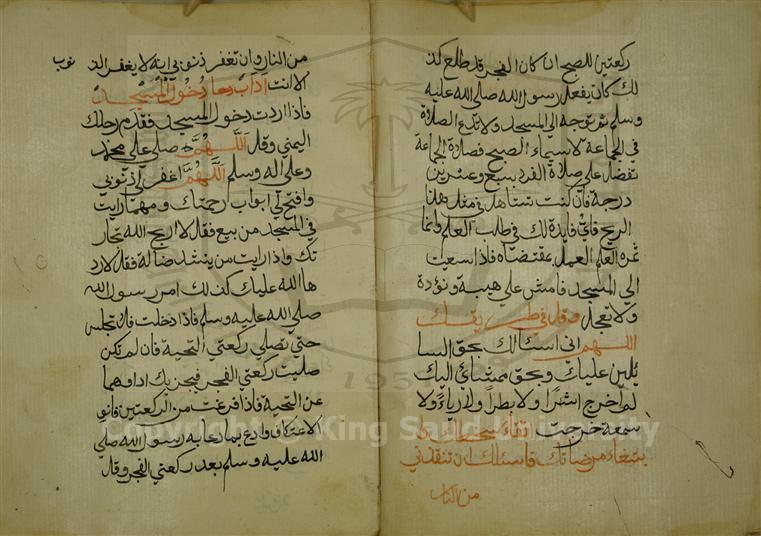 ركعتين للصبح ان كان الفجر قد طلع كذ
لك كان يفعل رسول الله صلي الله عليه
وسلم ثم توجه الي المسجد ولا تدع الصلاة
في الجماعة لا سيماء الصبح فصلاة الجماعة
تفضل علي صلاة الفرد بسبع وعشرين
درجة فان كنت تتساهل في مثل هذا
الربح فاي فايدة لك في طلب العلم وانما
ثمرة العلم العمل بمقتضاه فاذا سعيت
الي المسجد فامش علي هيبة وتؤدة
ولا تعجل وقل في طريقك
اللهم اني اسئالك بحق السا
يلين عليك وبحق ممشاي اليك
لم اخرج اشرا ولا بطرا ولا رياء ولا
سمعة خرجت اتقاء سخطك و
بتغاء مرضاتك فاسئلك ان تنقذني
من النار
من النار وان تغفر ذنوبي انه لا يغفر الذ
نوب
الا انت اداب دخول المسجد
فاذا اردت دخول المسجد فقدم رجلك
اليمني وقل اللهم صلي علي محمد
وعلي اله وسلم اللهم اغفر لي ذنوبي
وافتح لي ابواب رحمتك ومهما رايت
في المسجد من يبيع فقل لا اربح الله تجار
تك واذا رايت من ينشد ضالة فقل لا رد
ها الله عليك كذلك امر رسول الله
صلي الله عليه وسلم فاذا دخلت فلا تجلس
حتي تصلي ركعتي التحية فان لم تكن
صليت ركعتي الفجر فيجزيك اداوهما
عن التحية فاذا فرغت من الركعتين فانو
الاعتكاف وادع بما دعا به رسول الله صلي
الله عليه وسلم بعد ركعتي الفجر وقل
Copyright © King Saud University
195